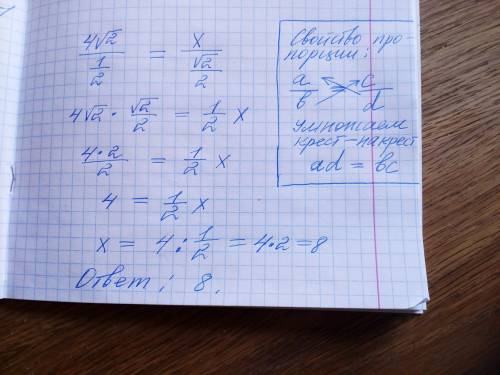 4√2 / (1/2) = x / (√2/2)
4√2 · √2/2 = 1/2 x
4·2/2 = 1/2 x
4 = 1/2 x
x = 4 : 1/2 = 4·2 = 8
Ответ: 8.
Свойство про-
порции:
a/b = c/d
Умножаем
крест-накрест
ad = bc